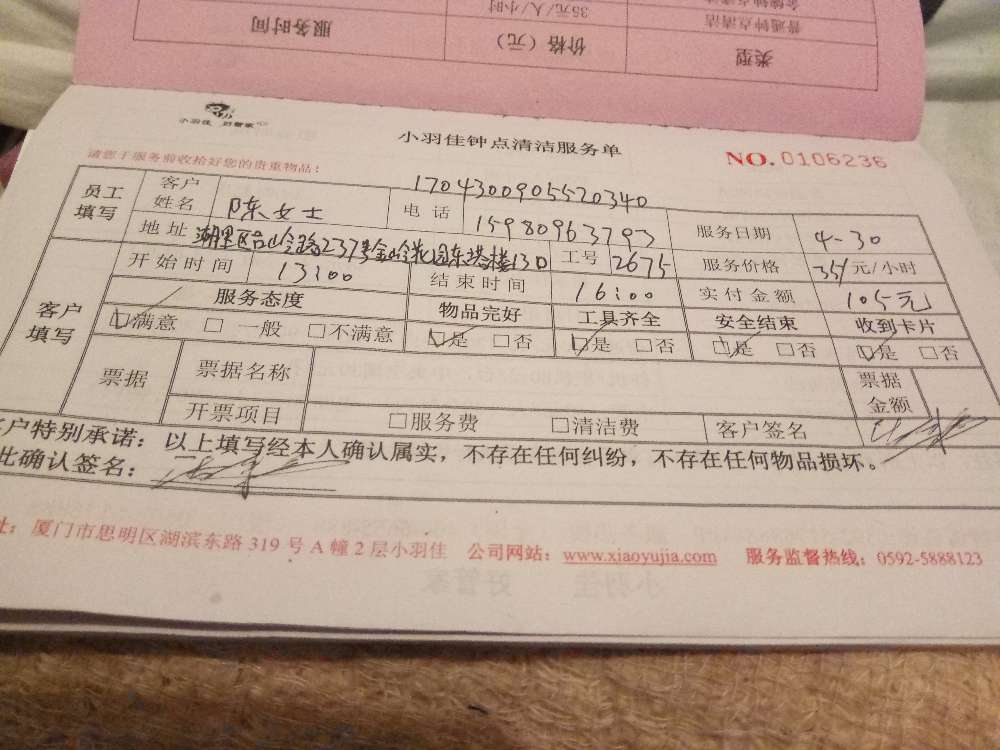 类型
价格（元）
服务时间
普通钟点清洁
35元/人/小时
小羽佳 好管家
小羽佳钟点清洁服务单
NO.0106236
请您于服务前收拾好您的贵重物品：
1704300905520340
员工填写
客户姓名 陈女士 电话 15980963793 服务日期 4-30
地址 湖里区台山路237号金岭花园东塔楼13D 工号 2675 服务价格 35/元/小时
客户填写
开始时间 13:00 结束时间 16:00 实付金额 105元
服务态度 物品完好 工具齐全 安全结束 收到卡片
□满意 □一般 □不满意 □是 □否 □是 □否 □是 □否 □是 □否
票据 票据名称 票据金额
开票项目 □服务费 □清洁费 客户签名
客户特别承诺：以上填写经本人确认属实，不存在任何纠纷，不存在任何物品损坏。
此确认签名：
址：厦门市思明区湖滨东路319号A幢2层小羽佳 公司网站：www.xiaoyujia.com 服务监督热线：0592-5888123